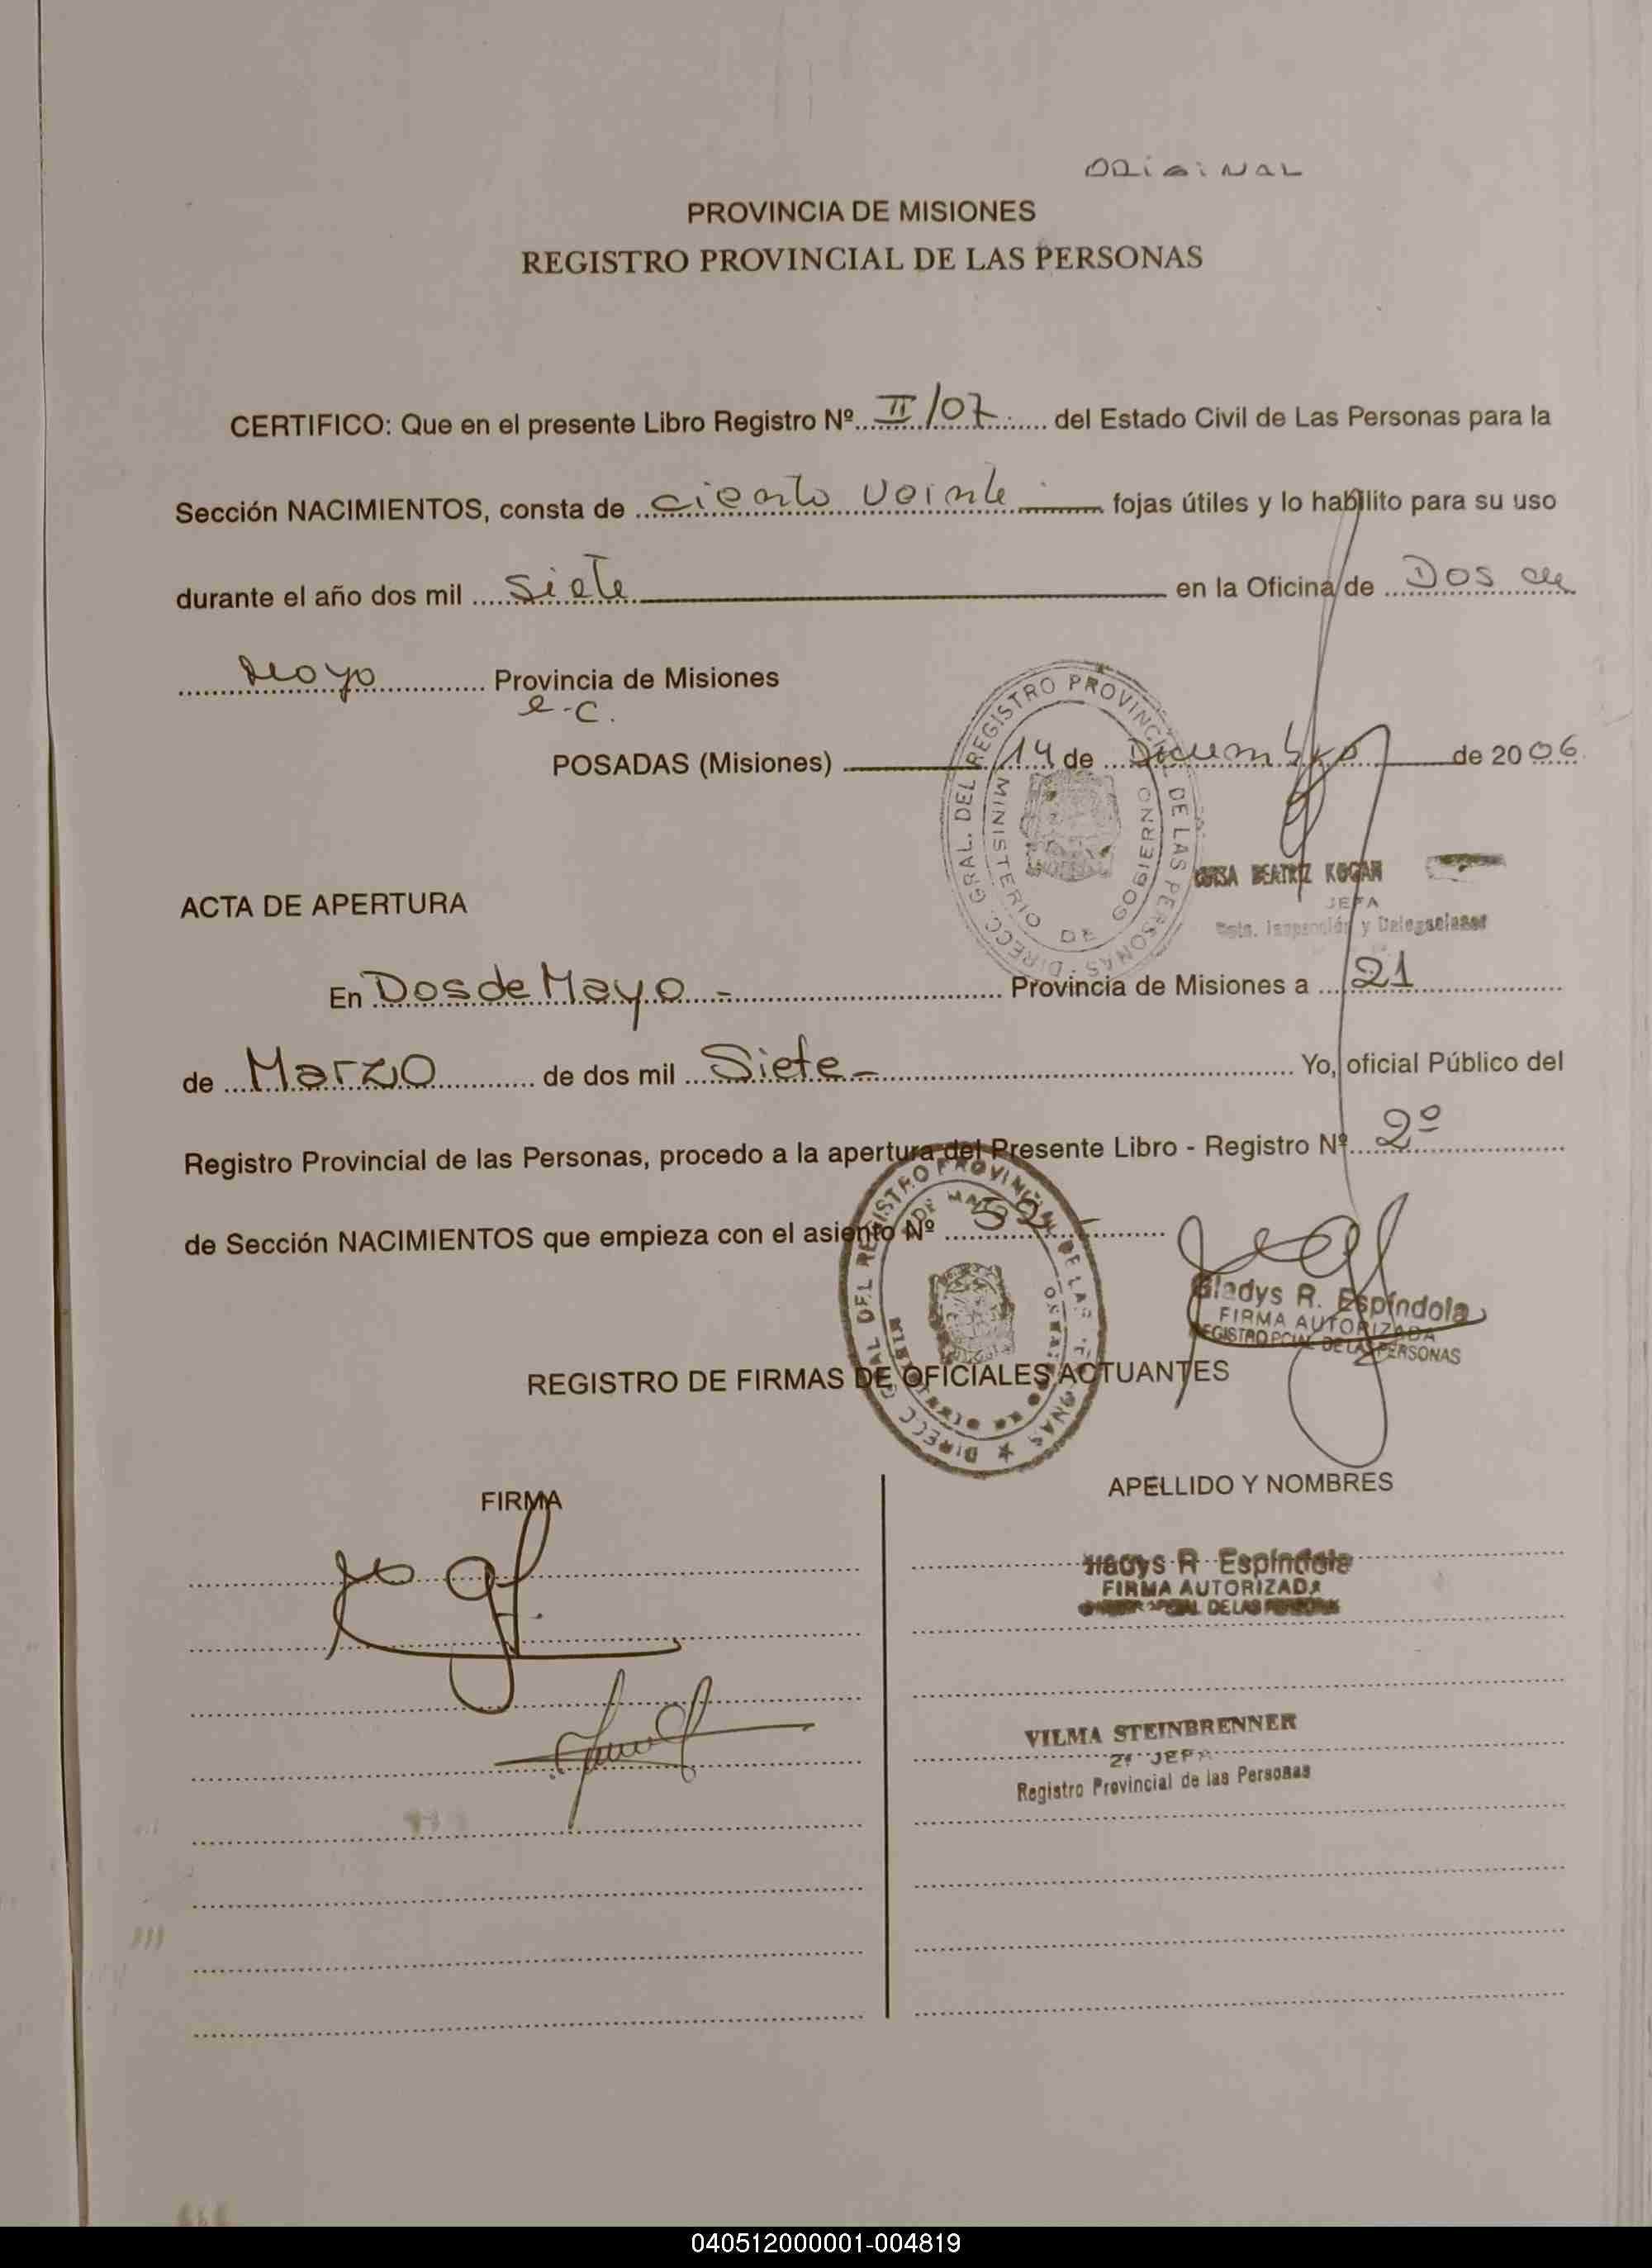 ORiGiNAL
PROVINCIA DE MISIONES
REGISTRO PROVINCIAL DE LAS PERSONAS
CERTIFICO: Que en el presente Libro Registro Nº II/07 del Estado Civil de Las Personas para la
Sección NACIMIENTOS, consta de ciento veinte fojas útiles y lo habilito para su uso
durante el año dos mil siete en la Oficina de Dos de
Mayo Provincia de Misiones
e.c.
POSADAS (Misiones) 14 de Diciembre de 2006
DIRECC. GRAL. DEL REGISTRO PROVINCIAL DE LAS PERSONAS
MINISTERIO DE GOBIERNO
BEATRIZ KOGAN
JEFA
Inspección y Delegaciones
ACTA DE APERTURA
En Dos de Mayo - Provincia de Misiones a 21
de Marzo de dos mil Siete - Yo, oficial Público del
Registro Provincial de las Personas, procedo a la apertura del Presente Libro - Registro Nº 2º
de Sección NACIMIENTOS que empieza con el asiento Nº 52 -
Gladys R. Espíndola
FIRMA AUTORIZADA
REGISTRO PCIAL DE LAS PERSONAS
REGISTRO DE FIRMAS DE OFICIALES ACTUANTES
FIRMA APELLIDO Y NOMBRES
R Espíndola
FIRMA AUTORIZADA
DE LAS
VILMA STEINBRENNER
2ª JEFA
Registro Provincial de las Personas
040512000001-004819